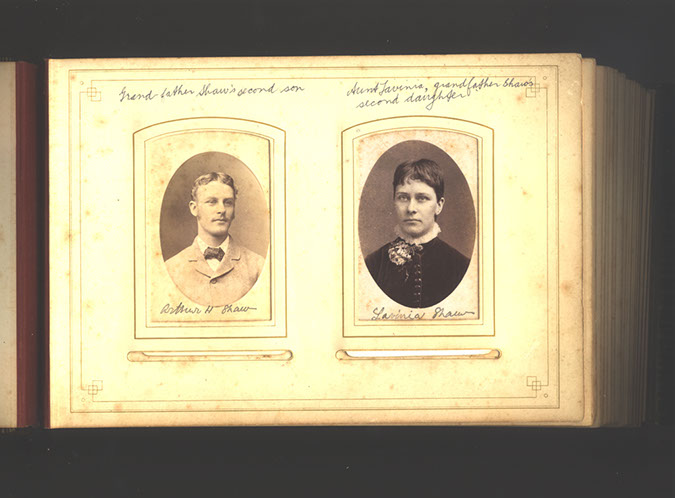 Grand father Shaw's second son
Aunt Lavinia, grandfather Shaw's
second daughter
Arthur H Shaw
Lavinia Shaw